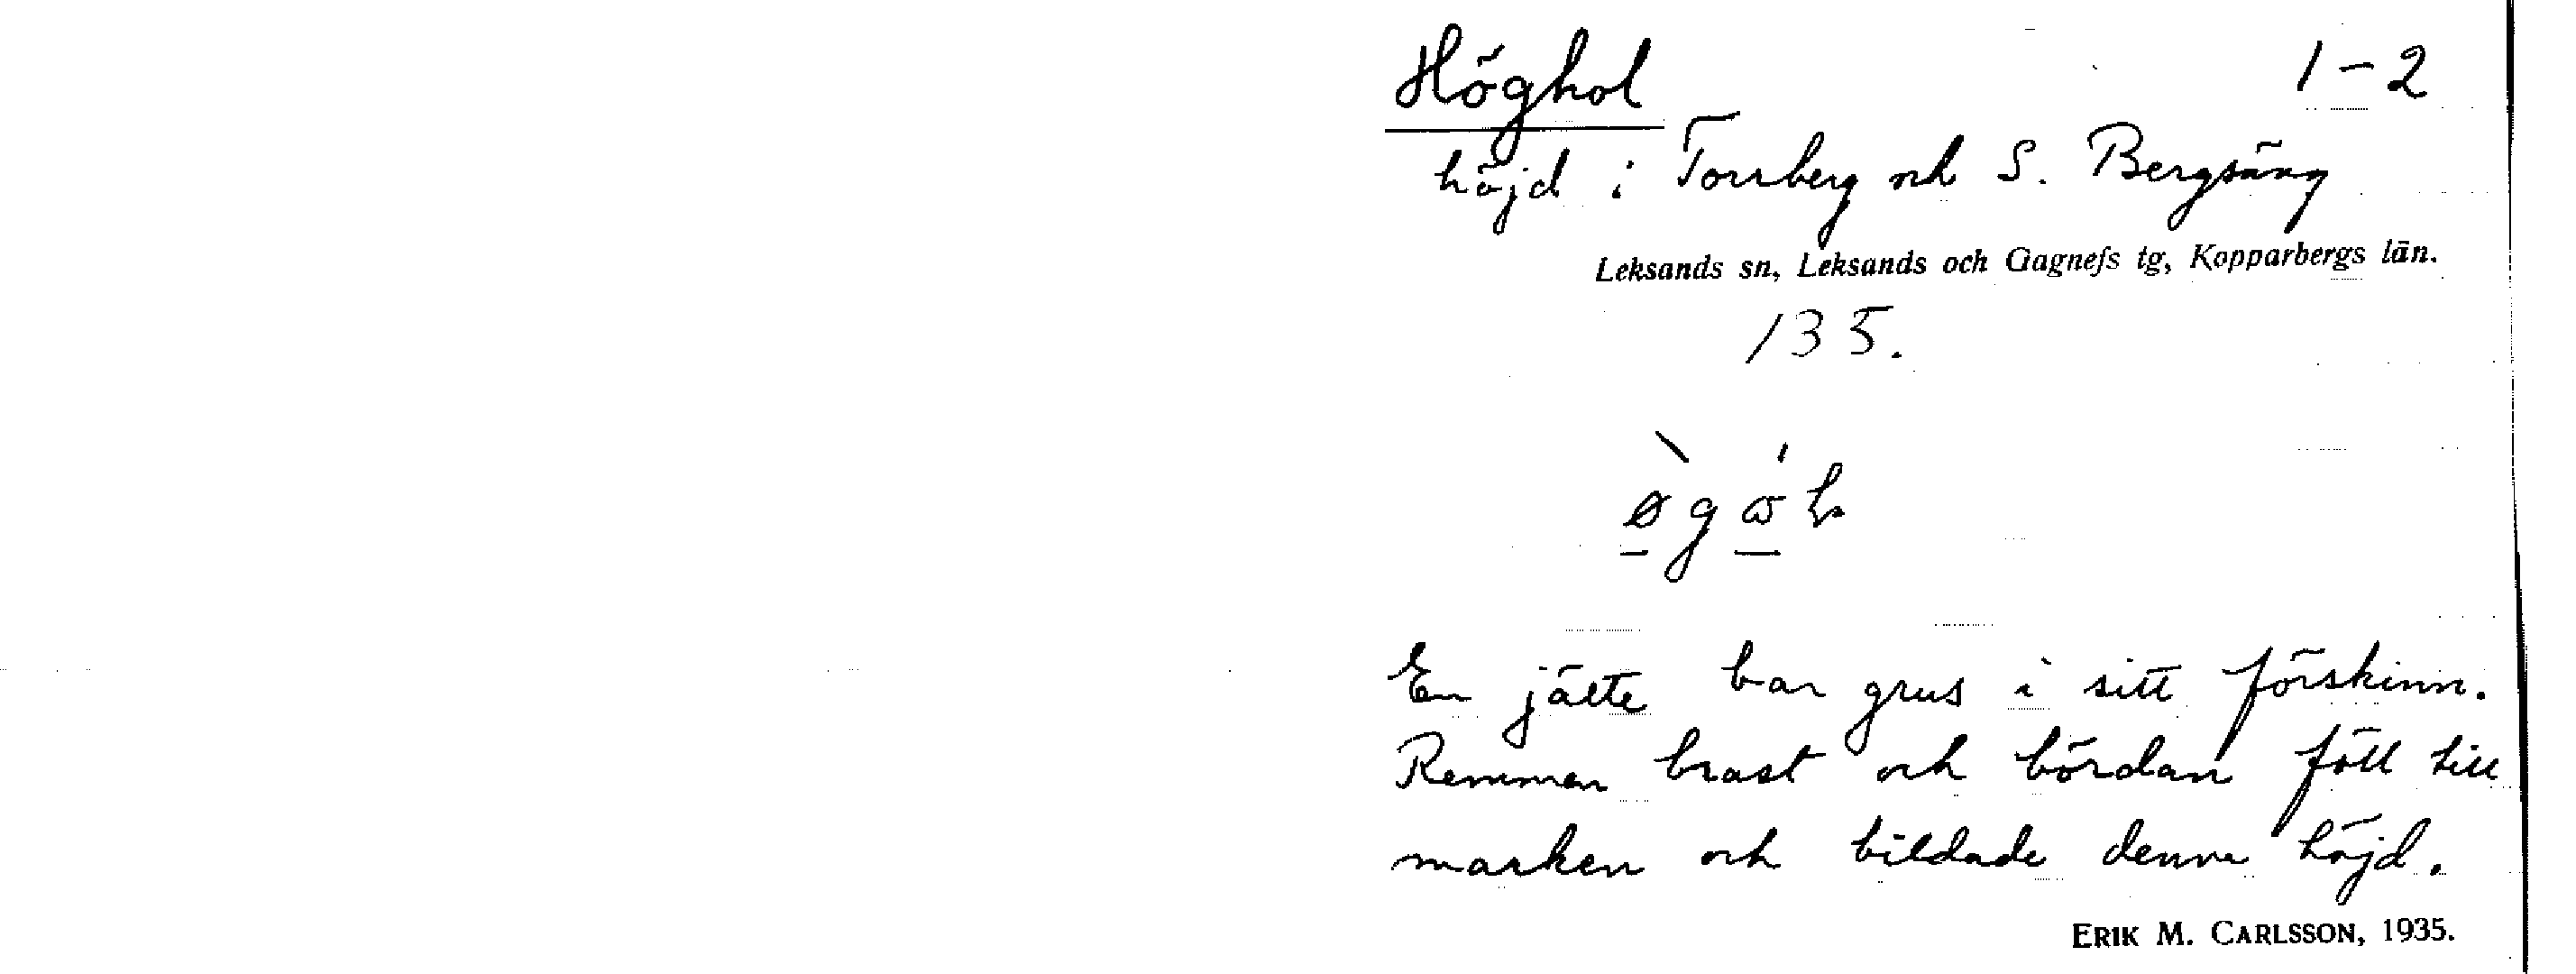 Höghol 1-2
höjd i Torrberg och S. Bergsäng
Leksands sn, Leksands och Gagnefs tg, Kopparbergs län.
135.
En jätte bar grus i sitt förskinn.
Remmen brast och bördan föll till
marken och bildade denna höjd.
ERIK M. CARLSSON, 1935.